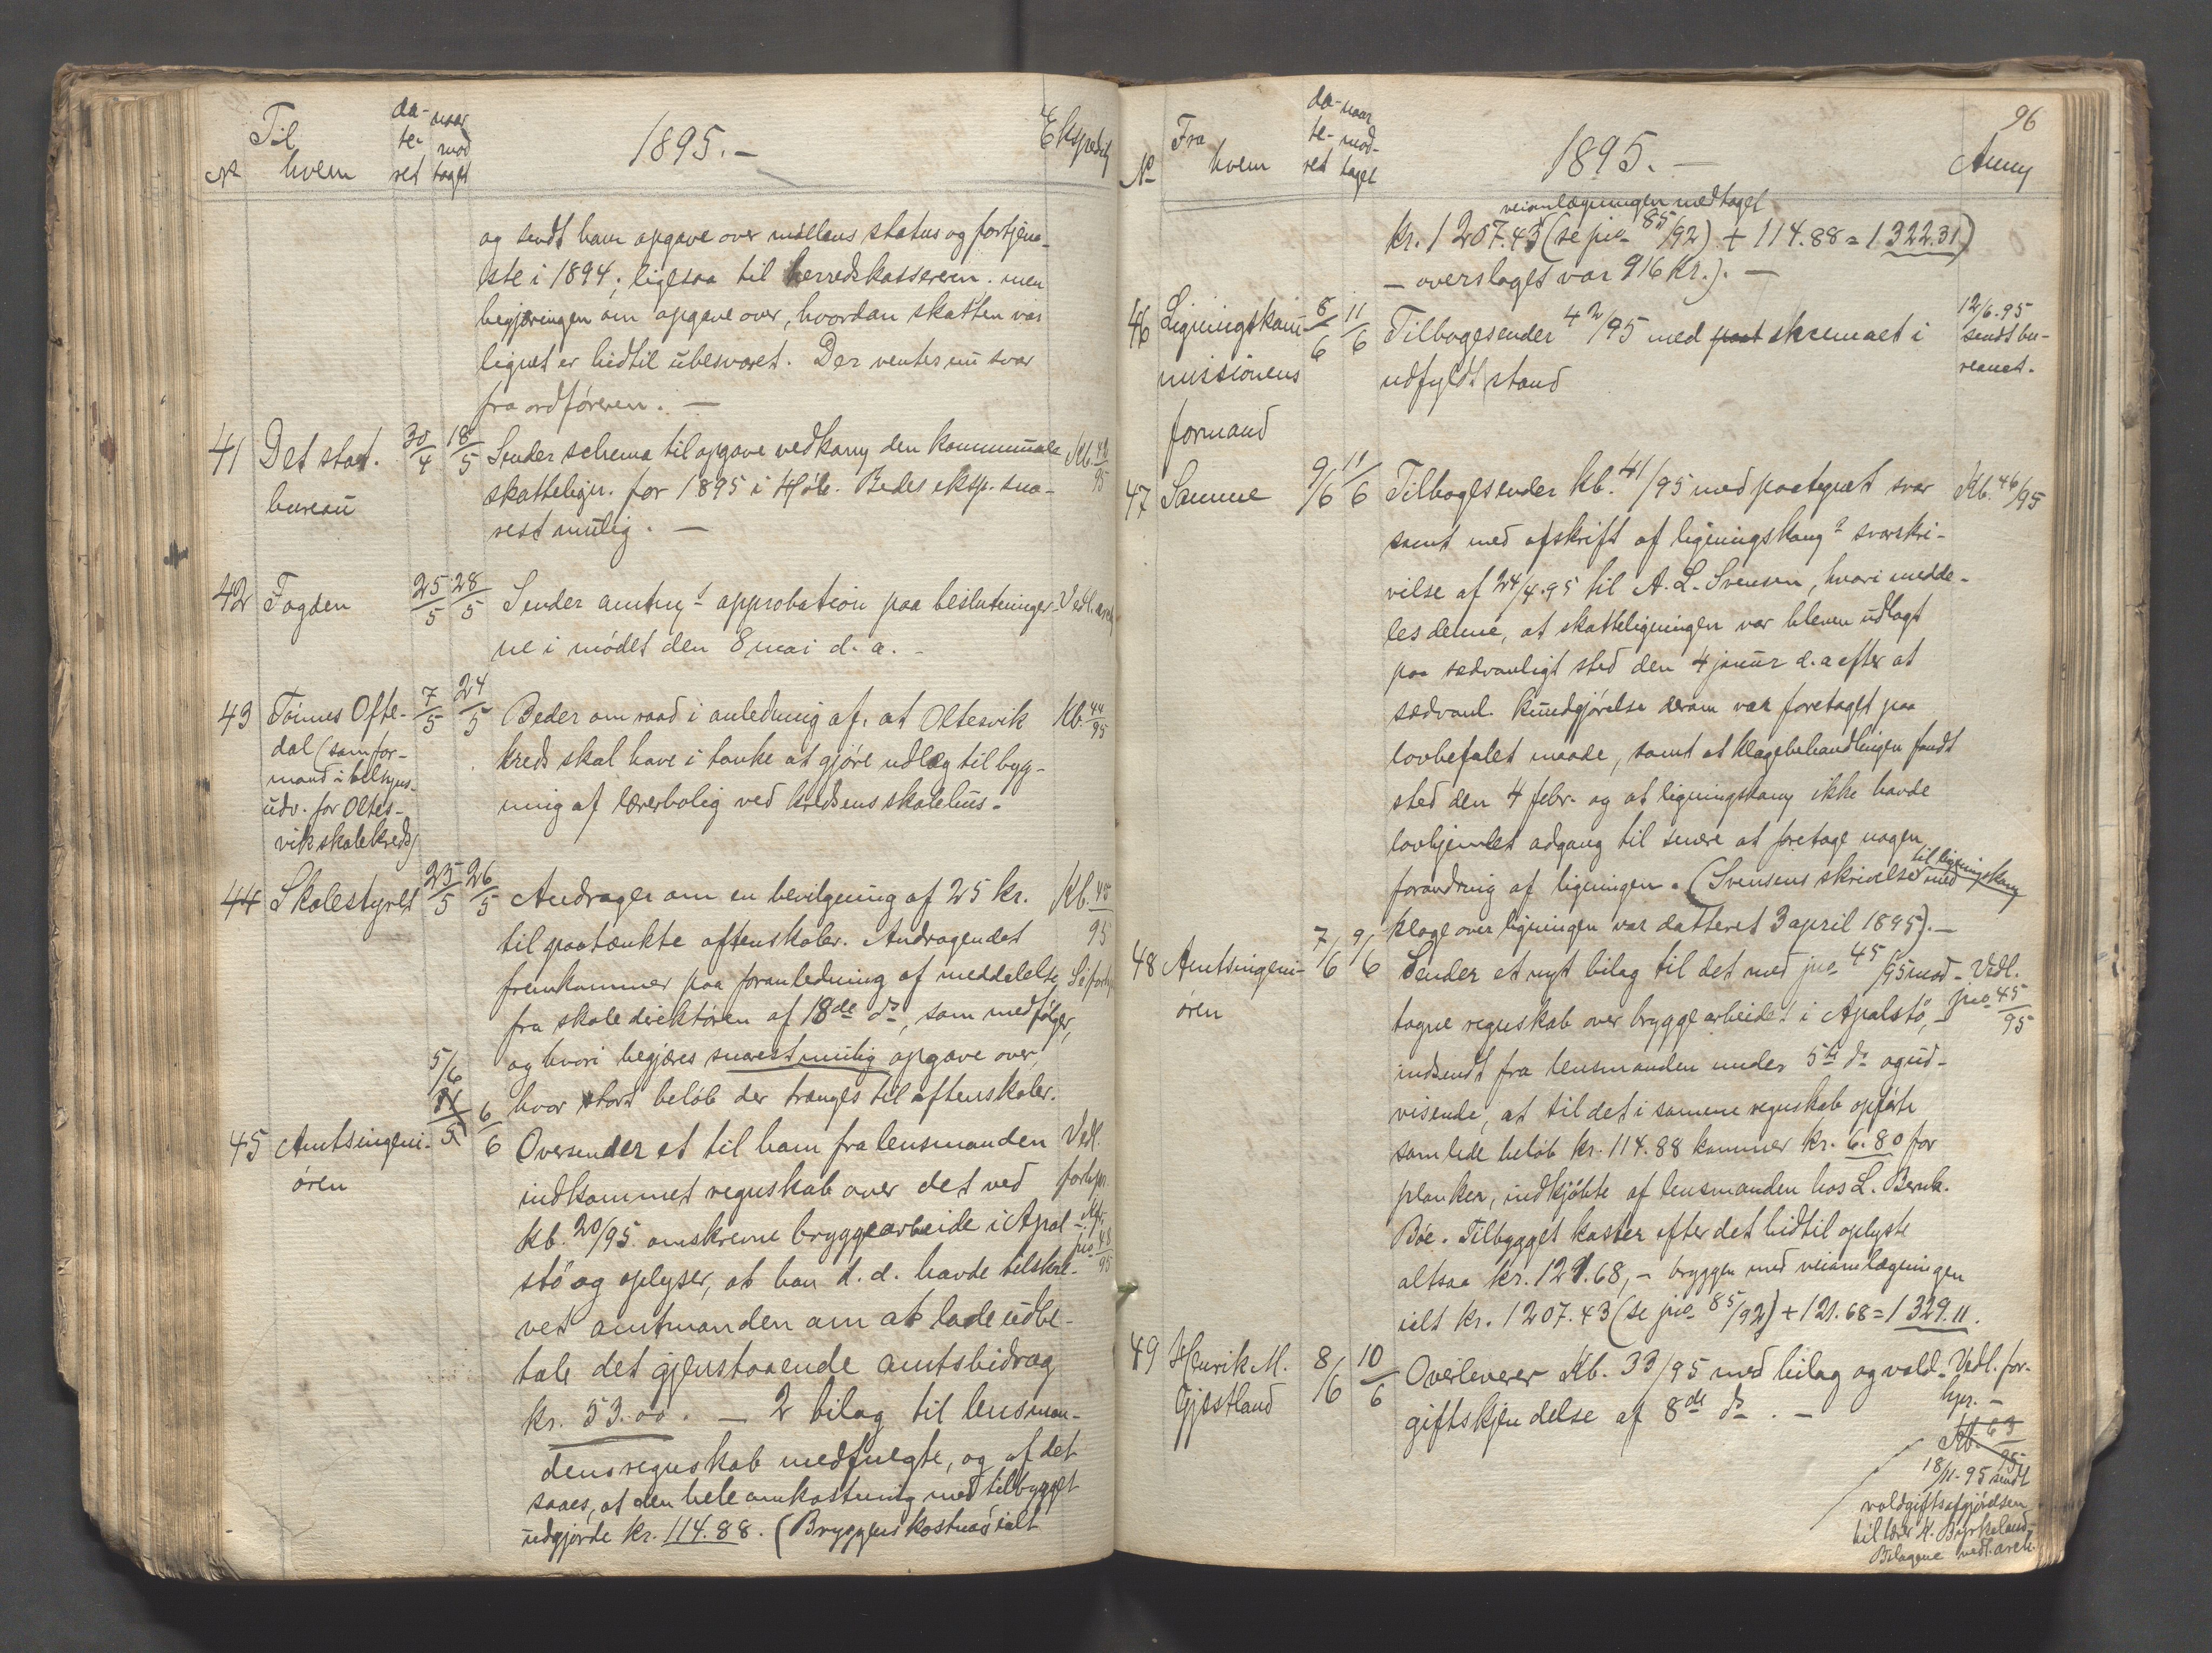 Til
hvem
No
da-
te-
ret
naar
mod
taget
1895. –
Ekspedit
og sendt ham opgave over møllens status og fortjene-
ste i 1894; ligesaa til herredskassereren. men
begjæringen om opgave over, hvordan skatten var
lignet er hidtil ubesvaret. Der ventes nu svar
fra ordføreren. –
41 Det stat. 30/4 18/5 Sender schema til opgave vedkomg den kommunale Kb. 42/95
bureau
skattelign. for 1895 i Høle. Bedes eksp. sna-
rest mulig. –
42 Fogden 25/5 28/5 Sender amtmds approbation paa beslutninger- Vedl. arch
ne i mødet den 8 mai d. a. –
43 Tønnes Ofte- 7/5 24/5 Beder om raad i anledning af, at Oltesvik Kb. 44/95
dal (som for-
mand i tilsyns-
udv. for Oltes-
vik skolekreds)
kreds skal have i tanke at gjøre udlæg til byg-
ning af lærerbolig ved kredsens skolehus.
44 Skolestyret 25/5 26/5 Andrager om en bevilgning af 25 kr. Kb. 45/95
til paatænkte aftenskoler. Andragendet
fremkommer paa foranledning af meddelelse
fra skoledirektøren af 18de ds, som medfølger,
og hvori begjæres snarest mulig opgave over,
hvor stort beløb der trænges til aftenskoler.
45 Amtsingeni- 5/6 6/6 Oversender et til ham fra lensmanden Vedl.
øren
indkommet regnskab over det ved forhpr.
kb. 20/95 omskrevne bryggearbeide i Apal- Kfr.
stø og oplyser, at han d. d. havde tilskre- jno 48/95
vet amtmanden om at lade udbe-
tale det gjenstaaende amtsbidrag
kr. 53.00. – 2 bilag til lensman-
dens regnskab medfulgte, og af det
saaes, at den hele omkostning med tilbygget
udgjorde kr. 114.88. (Bryggens kostnad ialt
96
Fra
hvem
No
da-
te-
ret
naar
mod-
taget
1895. –
Anmg
veiomlægningen medtaget
kr. 1207.43 (se jno 85/92) + 114.88 = 1322.31)
– overslaget var 916 kr.). –
46 Ligningskom- 8/6 11/6 Tilbagesender 42/95 med skemaet i 12/6.95
missionens
formand
udfyldt stand
sendt bu-
reauet.
47 Samme 9/6 11/6 Tilbagesender kb. 41/95 med paategnet svar Kb. 46/95
samt med afskrift af ligningskoms svarskri-
velse af 24/4.95 til A. L. Svensen, hvori medde-
les denne, at skatteligningen var bleven udlagt
paa sædvanligt sted den 4 januar d. a efter at
sædvanl. kundgjørelse derom var foretaget paa
lovbefalet maade, samt at klagebehandlingen fandt
sted den 4 febr. og at ligningskomg ikke havde
lovhjemlet adgang til senere at foretage nogen
forandring af ligningen. (Svensens skrivelse til ligningskomg med
klage over ligningen var datteret 3 april 1895). –
48 Amtsingeni- 7/6 9/6 Sender et nyt bilag til det med jno 45/95 mod- Vedl.
øren
tagne regnskab over bryggearbeidet i Apalstø, jno 45/95
indsendt fra lensmanden under 5te ds og ud-
visende, at til det i samme regnskab opførte
samlede beløb kr. 114.88 kommer kr. 6.80 for
planker, indkjøbte af lensmanden hos L. Bernh.
Bøe. Tilbygget koster efter det hidtil oplyste
altsaa kr. 121.68, – bryggen med veiomlægningen
ialt kr. 1207.43 (se jno 85/92) + 121.68 = 1329.11.
49 Henrik M. 8/6 10/6 Overleverer Kb. 33/95 med bilag og vold- Vedl. for-
Gjestland
giftskjendelse af 8de ds. –
hpr. –
Kb. 63/95
18/11-95 sendt
voldgiftsafgjørelsen
til lærer H. Byrkeland.
Bilagene vedl. arch.